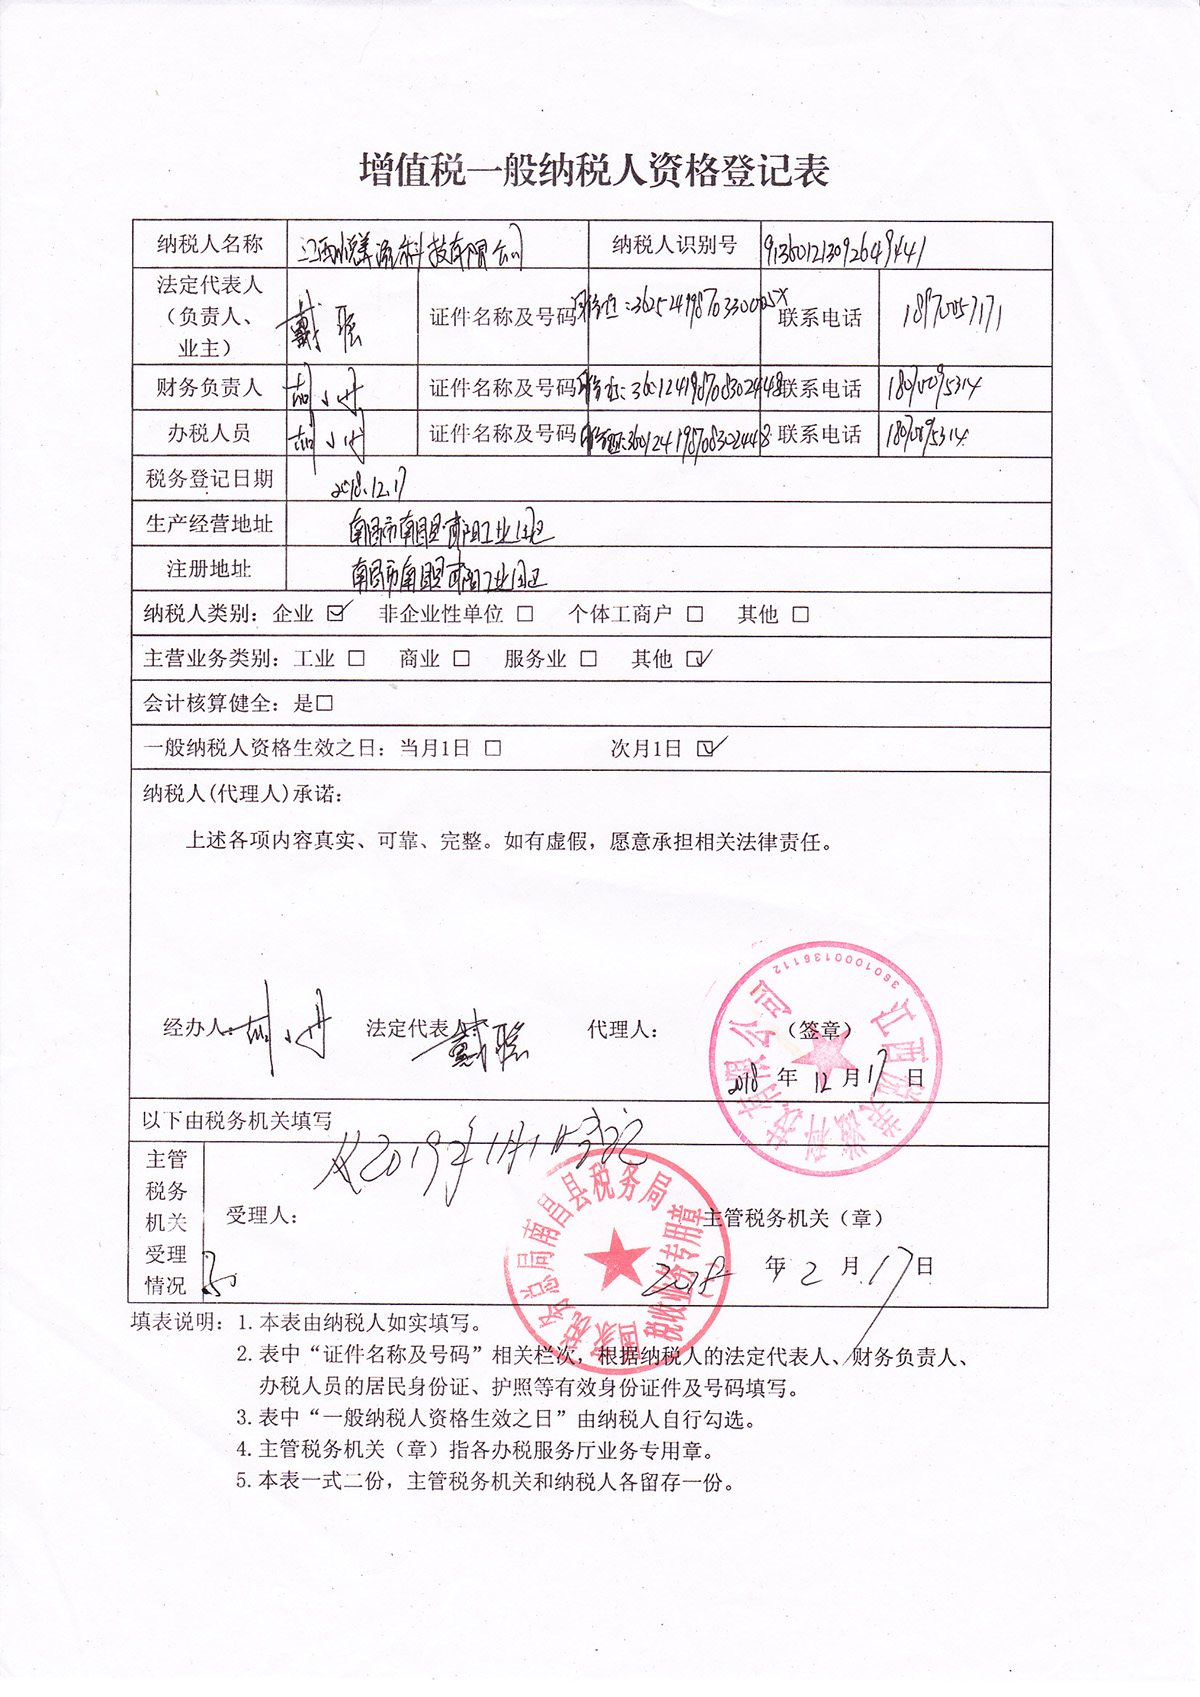 增值税一般纳税人资格登记表
纳税人名称 江西 科技有限公司 纳税人识别号 913601213092649441
法定代表人（负责人、业主） 戴 证件名称及号码 身份证: 联系电话
财务负责人 胡小丹 证件名称及号码 身份证: 360124198708302448 联系电话
办税人员 胡小丹 证件名称及号码 身份证: 360124198708302448 联系电话
税务登记日期 2018.12.17
生产经营地址 南昌市南昌县 工业园区
注册地址 南昌市南昌县 工业园区
纳税人类别：企业 ☑ 非企业性单位 □ 个体工商户 □ 其他 □
主营业务类别：工业 □ 商业 □ 服务业 □ 其他 ☑
会计核算健全：是□
一般纳税人资格生效之日：当月1日 □ 次月1日 ☑
纳税人(代理人)承诺：
上述各项内容真实、可靠、完整。如有虚假，愿意承担相关法律责任。
3601000136112
江西 科技有限公司
经办人: 胡小丹 法定代表人: 戴 代理人： （签章）
2018 年 12 月 17 日
以下由税务机关填写
从2019年1月1日
主管税务机关受理情况
受理人： 主管税务机关（章）
国家税务总局南昌县税务局
税收业务专用章
2018 年 12 月 17 日
填表说明：1.本表由纳税人如实填写。
2.表中“证件名称及号码”相关栏次，根据纳税人的法定代表人、财务负责人、
办税人员的居民身份证、护照等有效身份证件及号码填写。
3.表中“一般纳税人资格生效之日”由纳税人自行勾选。
4.主管税务机关（章）指各办税服务厅业务专用章。
5.本表一式二份，主管税务机关和纳税人各留存一份。